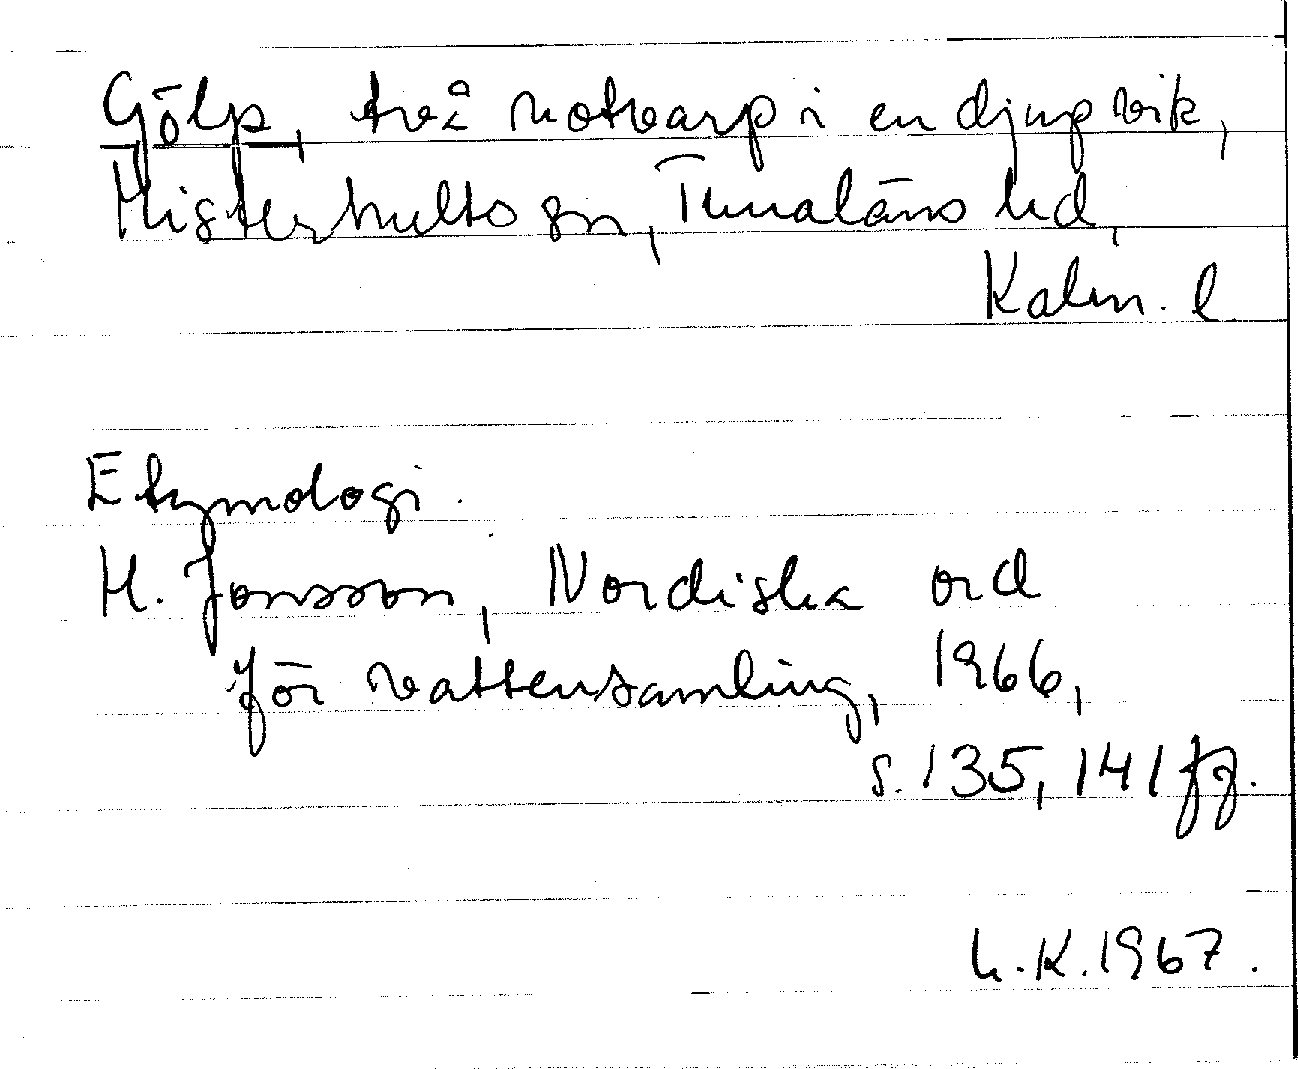 Gölp, två notvarp i en djup vik,
Misterhults sn, Tunaläns hd,
Kalm. l
Etymologi.
H. Jonsson, Nordiska ord
för vattensamling, 1966,
s. 135, 141 ff.
h.K.1967.